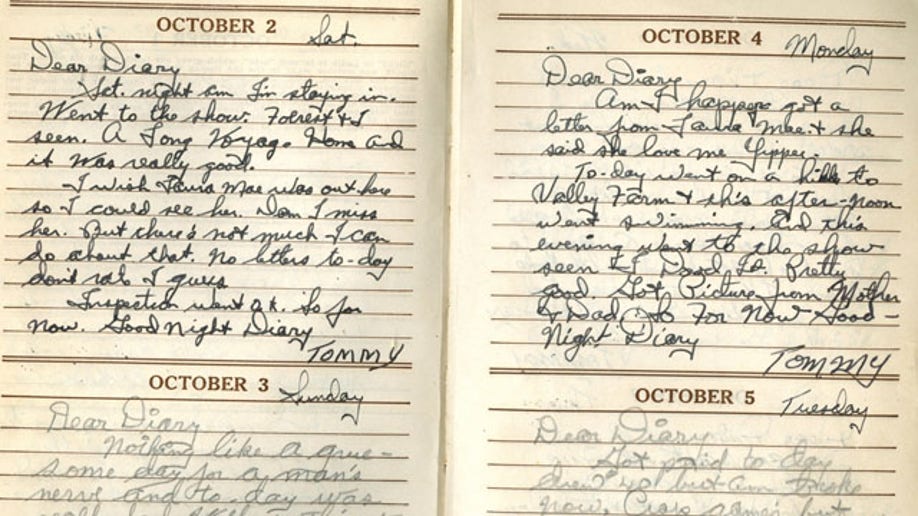 OCTOBER 2 Sat.
Dear Diary
Sat. night am I'm staying in.
Went to the show. Forrest & I
seen. A Long Voyage Home and
it was really good.
I wish Laura Mae was out here
so I could see her. Dam I miss
her. But there's not much I can
do about that. No letters to-day
don't rate I guess
Inspection went O.K. So for
now. Good Night Diary
TOMMY
OCTOBER 3 Sunday
Dear Diary
Nothing like a grue-
some day for a man's
nerve and to-day was
OCTOBER 4 Monday
Dear Diary
Am I happy got a
letter from Laura Mae & she
said she love me Yipper.
To-day went on a hike to
Valley Farm & this after-noon
went swimming. And this
evening went to the show
seen Pretty
good. Got Picture from Mother
& Dad. So For Now Good-
Night Diary
TOMMY
OCTOBER 5 Tuesday
Dear Diary
Got paid to-day
but am broke
now.